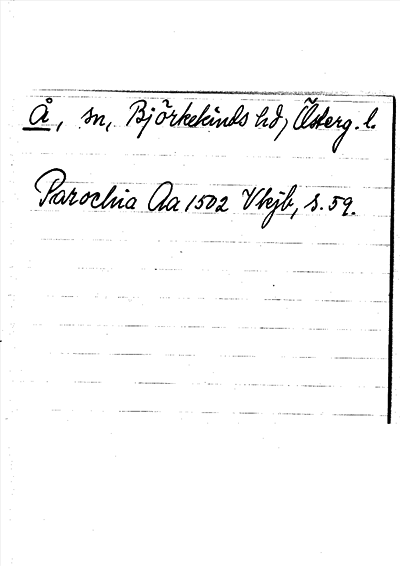 Å, sn, Björkekinds hd, Österg. l.
Parochia Aa 1502 Vkjb, s. 59.